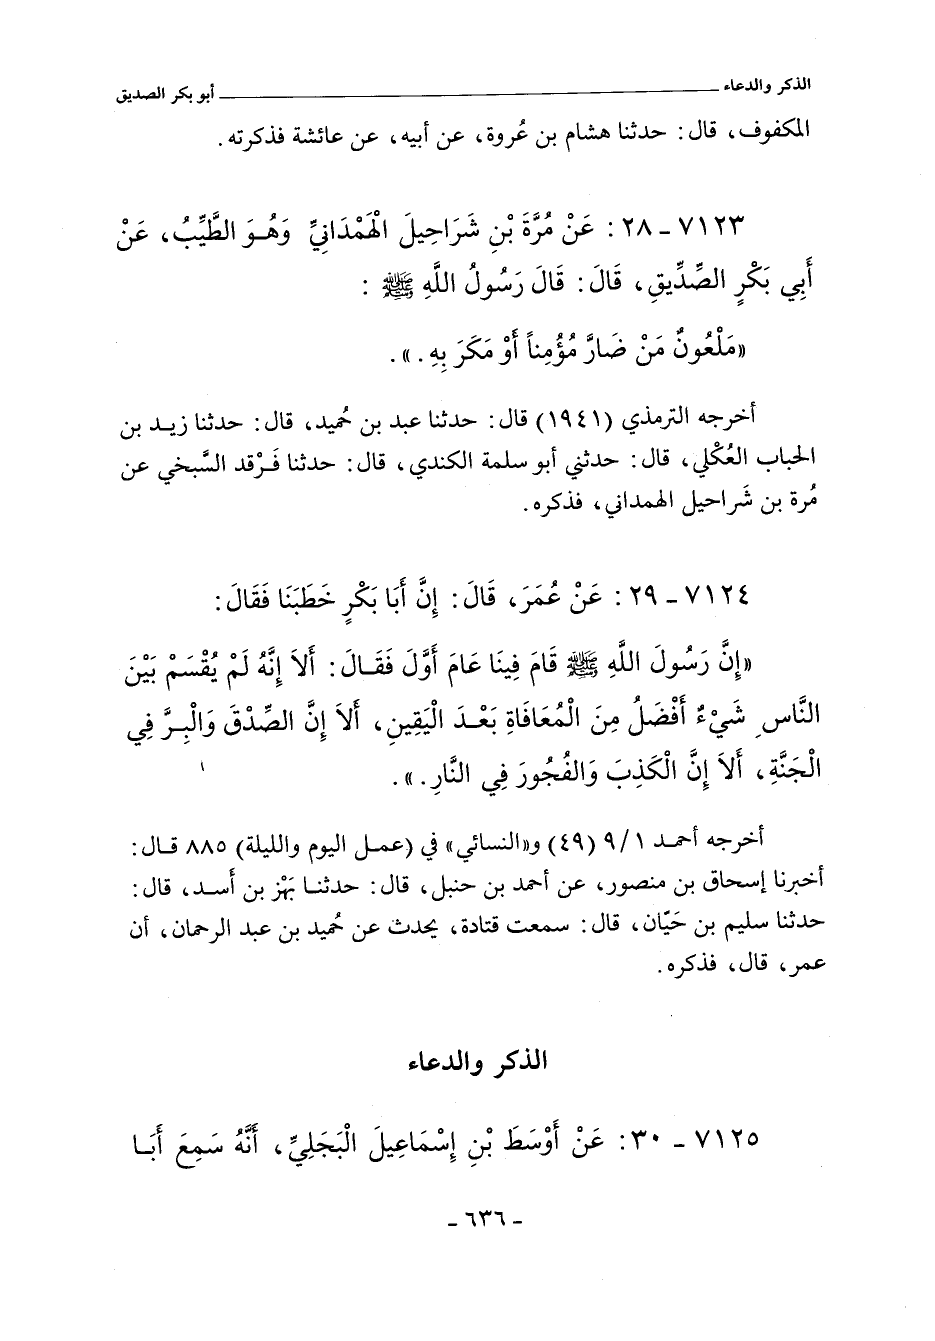 الذكر والدعاء ــــــــــــــــ أبو بكر الصديق
المكفوف، قال: حدثنا هشام بن عُروة، عن أبيه، عن عائشة فذكرته.
٧١٢٣ - ٢٨: عَنْ مُرَّةَ بْنِ شَرَاحِيلَ الْهَمْدَانِيِّ وَهُوَ الطَّيِّبُ، عَنْ
أَبِي بَكْرٍ الصِّدِّيقِ، قَالَ: قَالَ رَسُولُ اللَّهِ ﷺ:
«مَلْعُونٌ مَنْ ضَارَّ مُؤْمِناً أَوْ مَكَرَ بِهِ.».
أخرجه الترمذي (١٩٤١) قال: حدثنا عبد بن حُميد، قال: حدثنا زيد بن
الحباب العُكْلي، قال: حدثني أبو سلمة الكندي، قال: حدثنا فَرْقد السَّبخي عن
مُرة بن شَراحيل الهمداني، فذكره.
٧١٢٤ - ٢٩: عَنْ عُمَرَ، قَالَ: إِنَّ أَبَا بَكْرٍ خَطَبَنَا فَقَالَ:
«إِنَّ رَسُولَ اللَّهِ ﷺ قَامَ فِينَا عَامَ أَوَّلَ فَقَالَ: أَلاَ إِنَّهُ لَمْ يُقْسَمْ بَيْنَ
النَّاسِ شَيْءٌ أَفْضَلُ مِنَ الْمُعَافَاةِ بَعْدَ الْيَقِينِ، أَلاَ إِنَّ الصِّدْقَ وَالْبِرَّ فِي
الْجَنَّةِ، أَلاَ إِنَّ الْكَذِبَ وَالْفُجُورَ فِي النَّارِ.».
أخرجه أحمد ١/ ٩ (٤٩) و«النسائي» في (عمل اليوم والليلة) ٨٨٥ قال:
أخبرنا إسحاق بن منصور، عن أحمد بن حنبل، قال: حدثنا بَهْز بن أَسد، قال:
حدثنا سليم بن حَيّان، قال: سمعت قتادة، يحدث عن حُميد بن عبد الرحمان، أن
عمر، قال، فذكره.
الذكر والدعاء
٧١٢٥ - ٣٠: عَنْ أَوْسَطَ بْنِ إِسْمَاعِيلَ الْبَجَلِيِّ، أَنَّهُ سَمِعَ أَبَا
- ٦٣٦ -